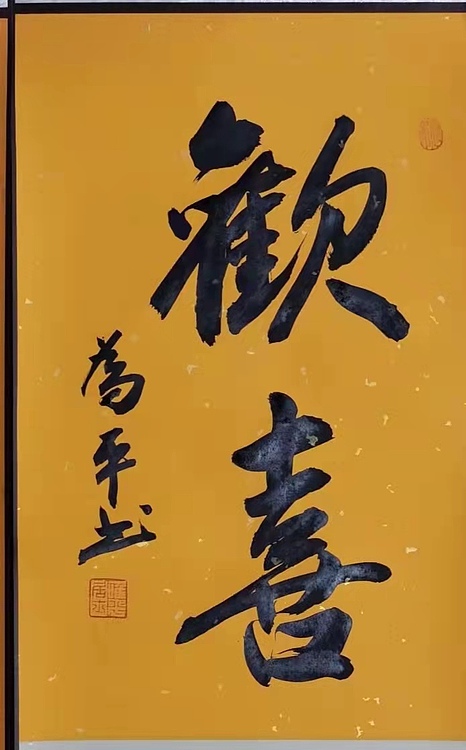 歡喜
為平书